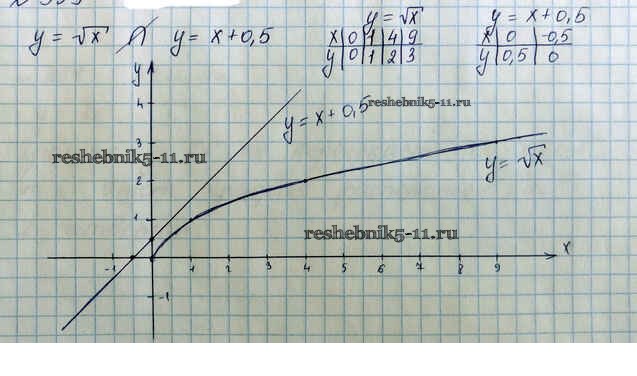 y = √x y = x + 0,5
y = √x
x 0 1 4 9
y 0 1 2 3
y = x + 0,5
x 0 -0,5
y 0,5 0
y
4
3
2
1
-1
-1 1 2 3 4 5 6 7 8 9
x
y = x + 0,5
y = √x
reshebnik5-11.ru
reshebnik5-11.ru
reshebnik5-11.ru